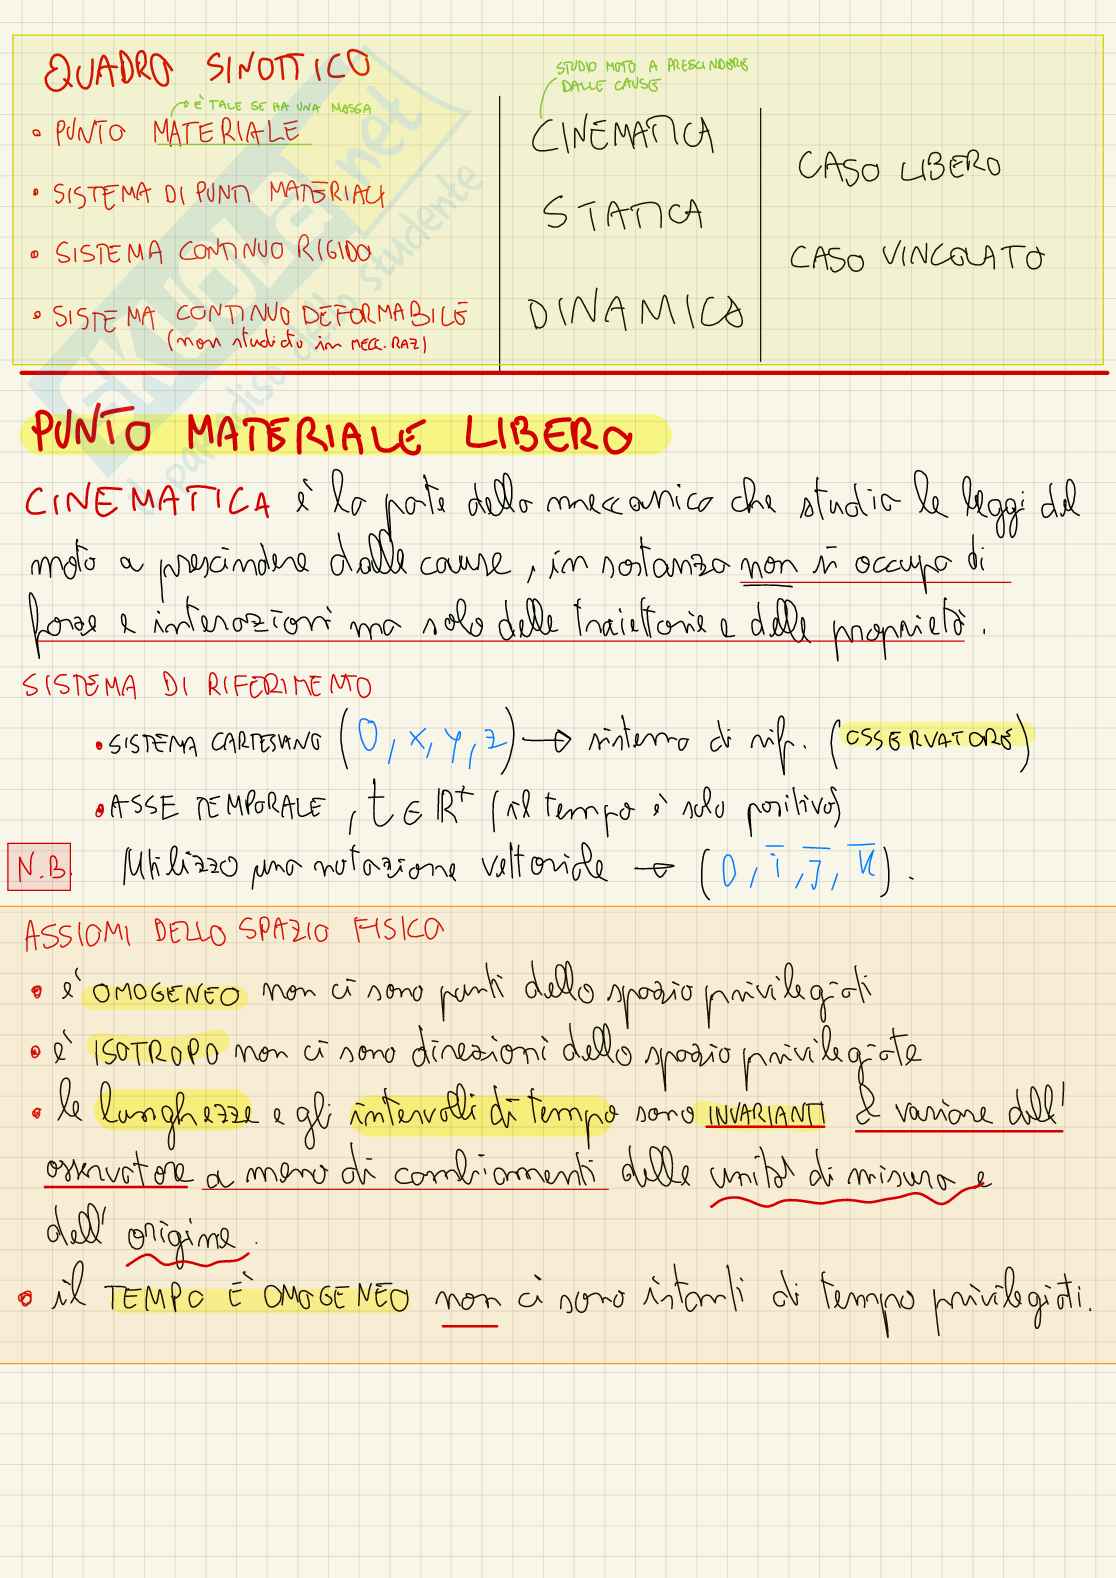 QUADRO SINOTTICO
è TALE SE HA UNA MASSA
• PUNTO MATERIALE
• SISTEMA DI PUNTI MATERIALI
• SISTEMA CONTINUO RIGIDO
• SISTEMA CONTINUO DEFORMABILE
(non studiato in MECC. RAZ)
STUDIO MOTO A PRESCINDERE
DALLE CAUSE
CINEMATICA
STATICA
DINAMICA
CASO LIBERO
CASO VINCOLATO
PUNTO MATERIALE LIBERO
CINEMATICA è la parte della meccanica che studia le leggi del
moto a prescindere dalle cause, in sostanza non si occupa di
forze e interazioni ma solo delle traiettorie e delle proprietà.
SISTEMA DI RIFERIMENTO
• SISTEMA CARTESIANO (O, x, y, z) → sistema di rif. (OSSERVATORE)
• ASSE TEMPORALE, t ∈ ℝ⁺ (il tempo è solo positivo)
N.B. Utilizzo una notazione vettoriale → (O, i̅, j̅, k̅).
ASSIOMI DELLO SPAZIO FISICO
• è OMOGENEO non ci sono punti dello spazio privilegiati
• è ISOTROPO non ci sono direzioni dello spazio privilegiate
• le lunghezze e gli intervalli di tempo sono INVARIANTI al variare dell'
osservatore a meno di cambiamenti delle unità di misura e
dell' origine.
• il TEMPO È OMOGENEO non ci sono istanti di tempo privilegiati.
SKUOLA.net
il paradiso dello studente